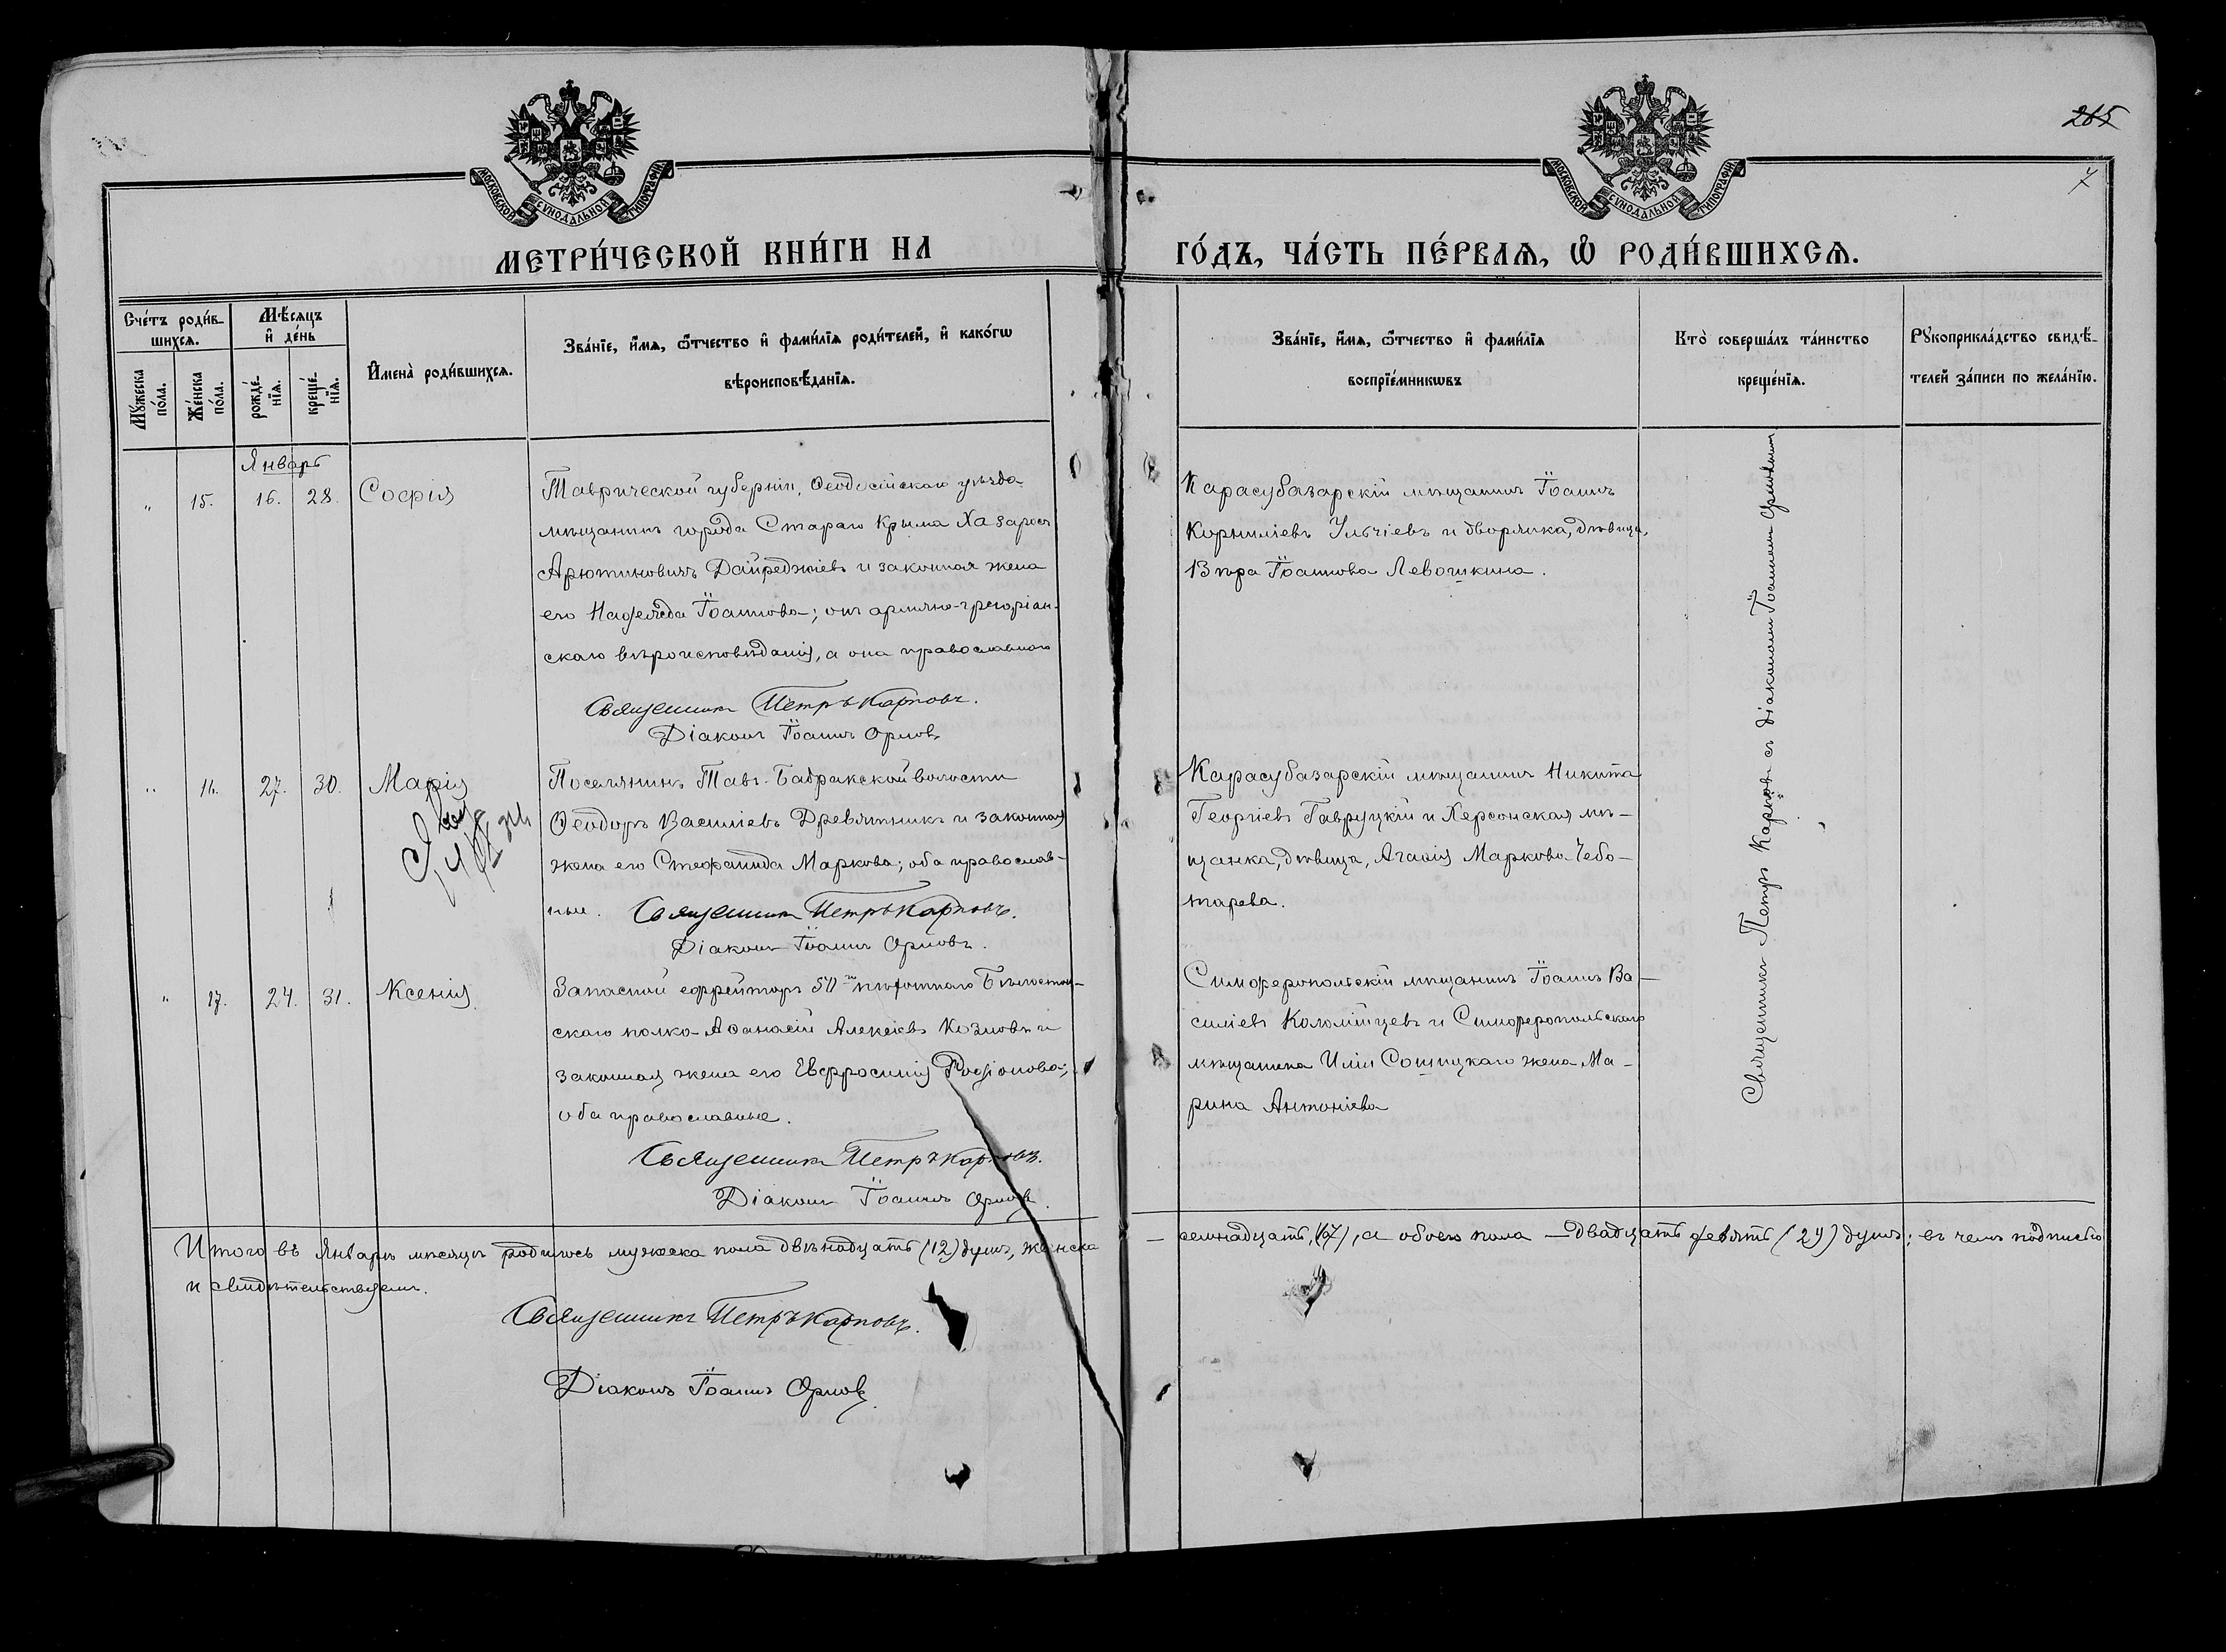 265
7
МОСКОВСКОЙ СѴНОДАЛЬНОЙ ТИПОГРАФІИ
МОСКОВСКОЙ СѴНОДАЛЬНОЙ ТИПОГРАФІИ
МЕТРИ́ЧЕСКОЙ КНИ́ГИ НА
ГО́ДЪ, ЧА́СТЬ ПЕ́РВАѦ, Ѡ҆ РОДИ́ВШИХСѦ.
Сче́тъ роди́в-
шихсѧ.
Мѣ́сѧцъ
и҆ де́нь
Мꙋ́жеска
по́ла.
Же́нска
по́ла.
рожде́-
нїѧ.
креще́-
нїѧ.
И҆мена̀ роди́вшихсѧ.
Зва́нїе, и҆́мѧ, ѻ҆́тчество и҆ фами́лїѧ роди́телей, и҆ како́гѡ
вѣроисповѣ́данїѧ.
Зва́нїе, и҆́мѧ, ѻ҆́тчество и҆ фами́лїѧ
воспрїе́мникѡвъ
Кто̀ соверша́лъ та́инство
креще́нїѧ.
Рꙋкоприкла́дство свидѣ́-
телей за́писи по жела́нїю.
Январь
" 15. 16. 28. Софія
Таврической губерніи, Ѳеодосійскаго уѣзда
мѣщанинъ города Стараго Крыма Хазаросъ
Арютиновичъ Дайреджіевъ и законная жена
его Надежда Іоаннова; онъ армяно-грегоріан-
скаго вѣроисповѣданія, а она православнаго
Священникъ Петръ Карповъ.
Діаконъ Іоаннъ Орловъ
Карасубазарскій мѣщанинъ Іоаннъ
Корниліевъ Ульчіевъ и дворянка, дѣвица,
Вѣра Іоаннова Левошкина.
" 16. 27. 30. Марія
Поселянинъ Тавъ-Бадракской волости
Ѳеодоръ Василіевъ Древятникъ и законная
жена его Стефанида Маркова; оба православ-
ные. Священникъ Петръ Карповъ.
Діаконъ Іоаннъ Орловъ.
Карасубазарскій мѣщанинъ Никита
Георгіевъ Гавруцкій и Херсонская мѣ-
щанка, дѣвица, Агаѳія Маркова Чебо-
тарева.
" 17. 24. 31. Ксенія
Запасной ефрейторъ 50го пѣхотнаго Бѣлосток-
скаго полка Аѳанасій Алексіевъ Козловъ и
законная жена его Евфросинія Родіонова;
оба православные.
Священникъ Петръ Карповъ.
Діаконъ Іоаннъ Орловъ.
Симферопольскій мѣщанинъ Іоаннъ Ва-
силіевъ Коломійцевъ и Симферопольскаго
мѣщанина Иліи Сошицкаго жена Ма-
рина Антоніева
Священникъ Петръ Карповъ съ діакономъ Іоанномъ Орловымъ
Итого въ Январѣ мѣсяцѣ родилось мужеска пола двѣнадцать (12) душъ, женска
– семнадцать, (17), а обоего пола – двадцать девять (29) душъ; въ чемъ подписью
и свидѣтельствуемъ.
Священникъ Петръ Карповъ.
Діаконъ Іоаннъ Орловъ.